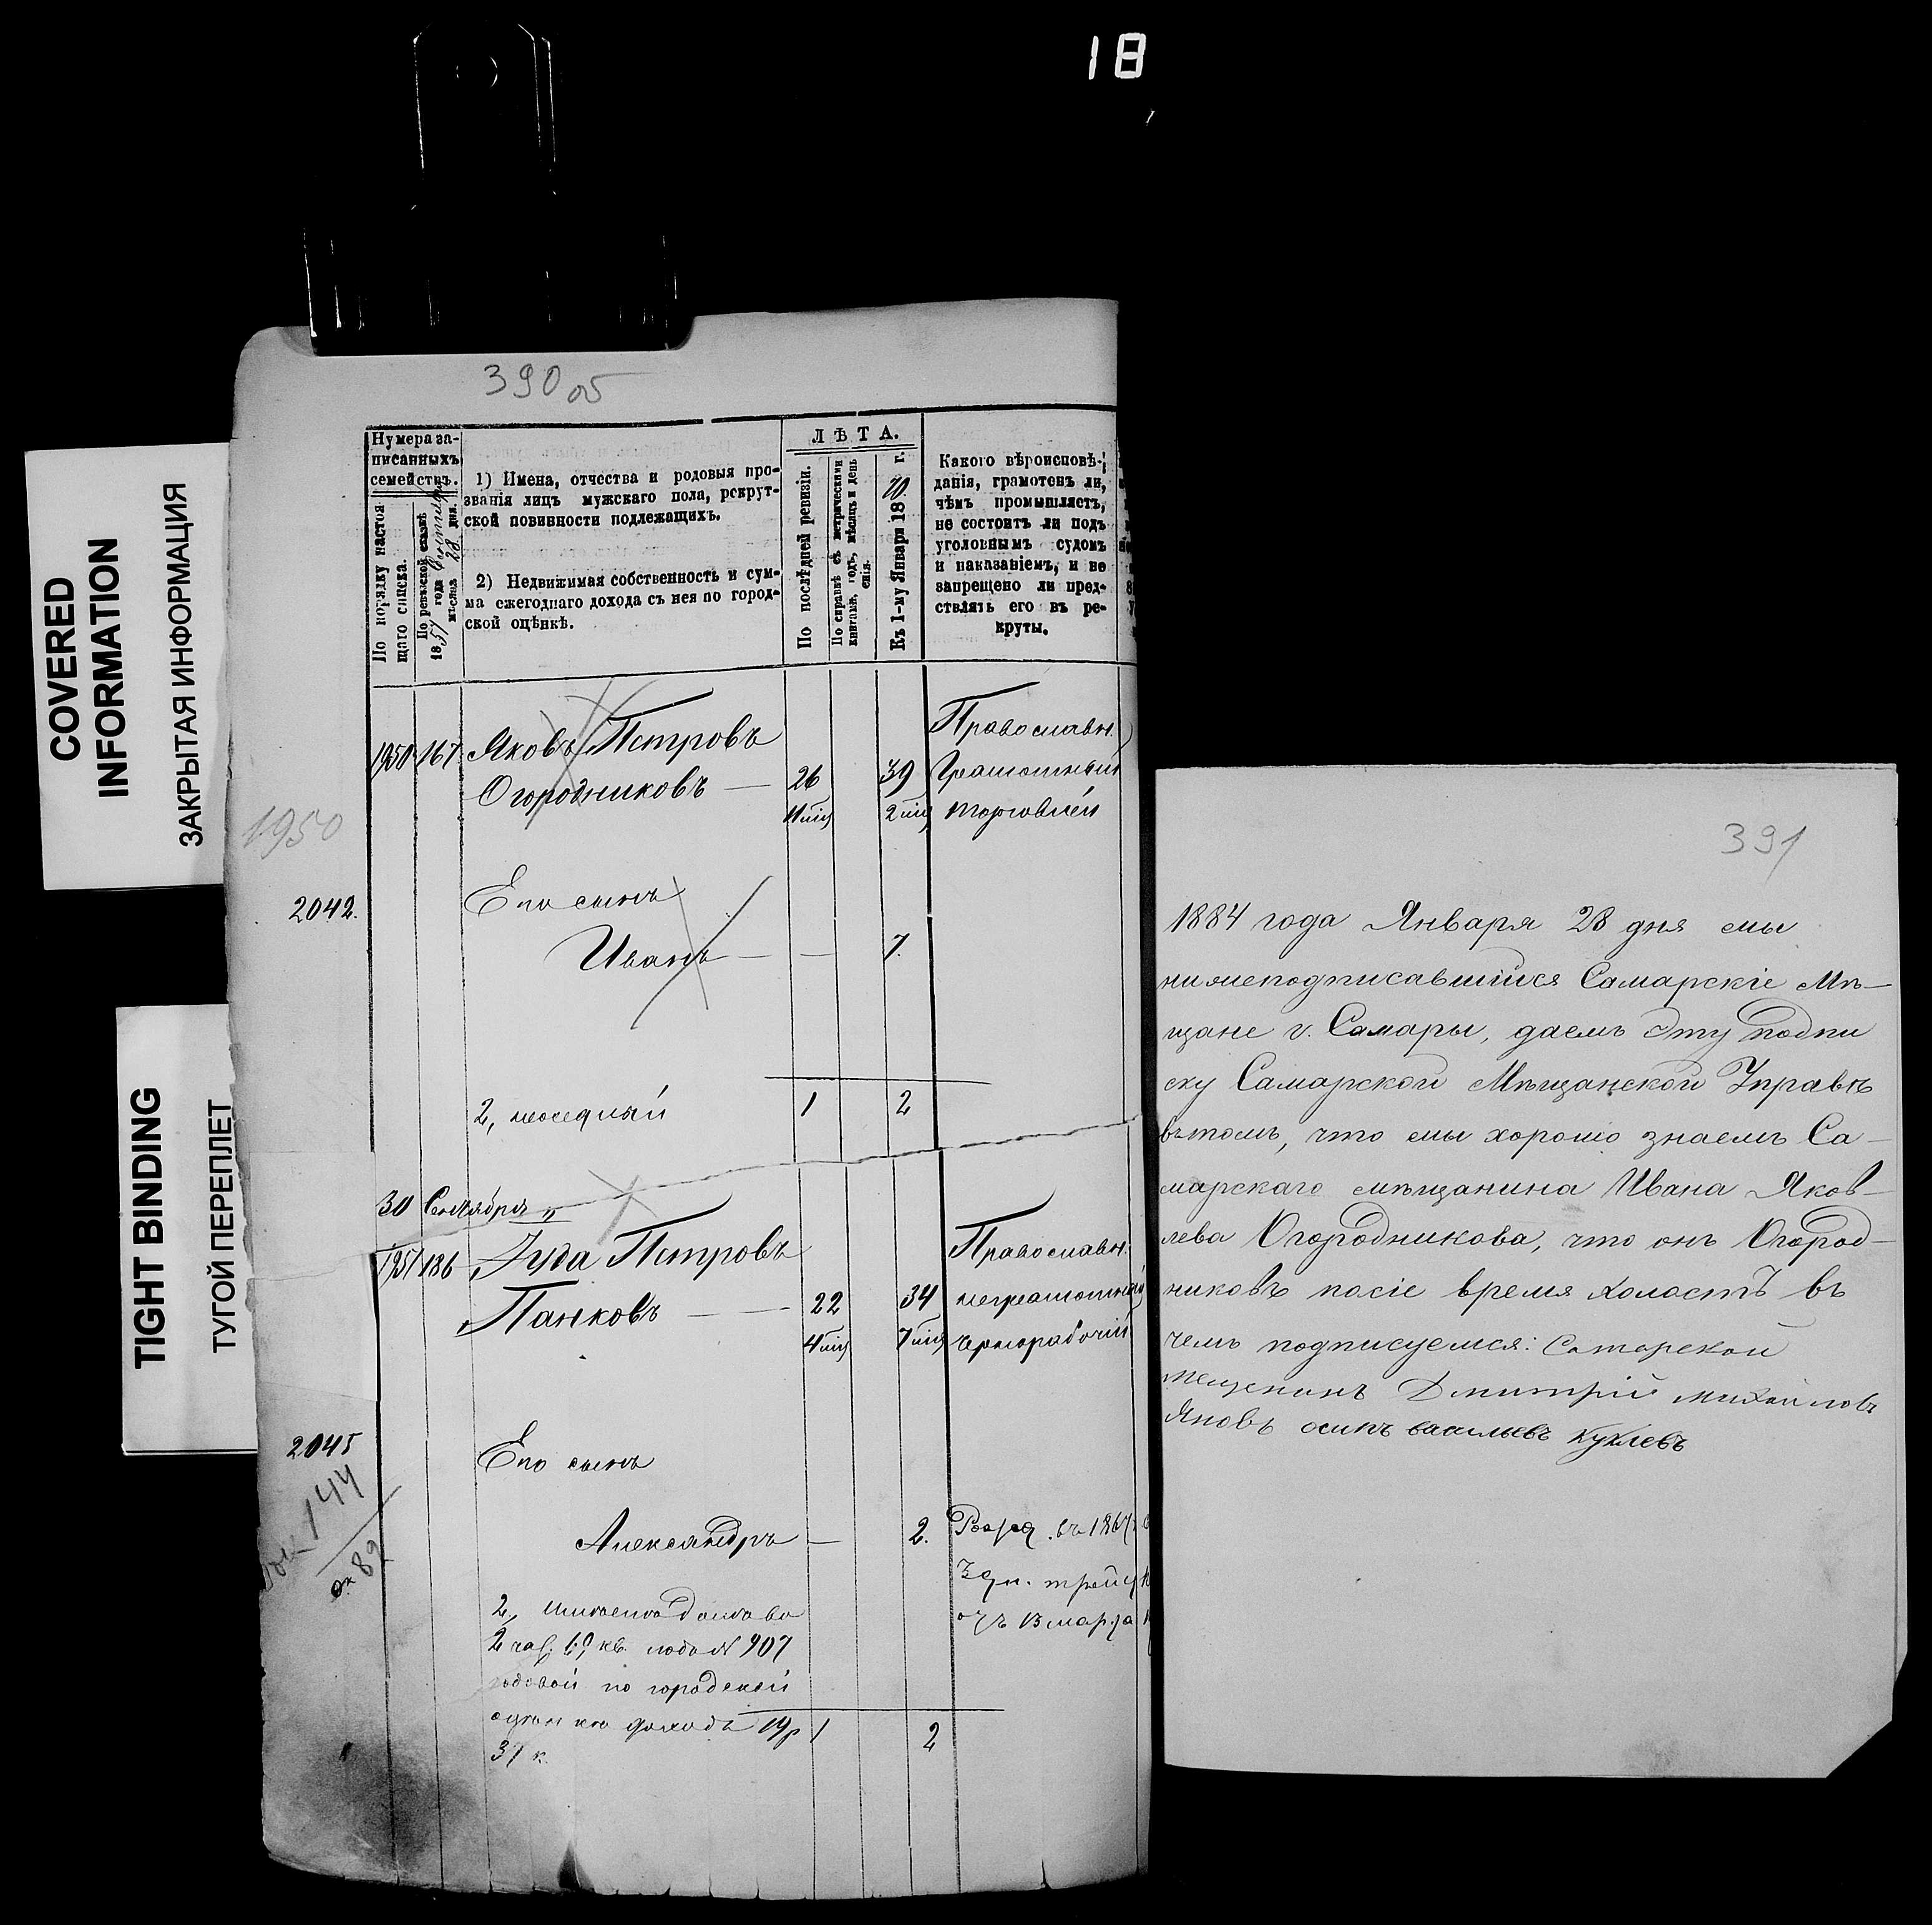 18
COVERED
INFORMATION
ЗАКРЫТАЯ ИНФОРМАЦИЯ
TIGHT BINDING
ТУГОЙ ПЕРЕПЛЕТ
390 об
Нумера за-
писанныхъ
семействъ.
По порядку настоя-
щаго списка.
По ревизской сказкѣ
1857 года Сентября
мѣсяца 28 дня.
1) Имена, отчества и родовыя про-
званія лицъ мужскаго пола, рекрут-
ской повинности подлежащихъ.
2) Недвижимая собственность и сум-
ма ежегоднаго дохода съ нея по город-
ской оцѣнкѣ.
ЛѢТА.
По послѣдней ревизіи.
По справкѣ съ метрическими
книгами, годъ, мѣсяцъ и день
Къ 1-му Января 1870 г.
Какого вѣроисповѣ-
данія, грамотенъ ли,
чѣмъ промышляетъ,
не состоитъ ли подъ
уголовнымъ судомъ
и наказаніемъ, и не
запрещено ли пред-
ствлять его въ ре-
круты.
1950 167 Яковъ Петровъ Православн.
Огородниковъ — 26 39 Грамотный
11 міц 2 міц торговлей
1950
2042.
Его сынъ
Иванъ — — 7.
2, 1 2
30 Сентября
1951 186 Іуда Петровъ Православн.
Панковъ — — 22 34 неграмотный
4 міц 7 міц чернорабочій
2045
144
89
Его сынъ
Александръ — 2. въ 1867
2,
2 час. кв. подъ № 907
годовой по городской
доходъ 19 р 1 2
37 к.
13 марта
391
1884 года Января 28 дня мы
нижеподписавшійся Самарскіе Мѣ-
щане г. Самары, даемъ эту подпи
ску Самарской Мѣщанской Управѣ
въ томъ, что мы хорошо знаемъ Са-
марскаго мѣщанина Ивана Яков-
лева Огородникова, что онъ Огород-
никовъ посіе время холостъ въ
чемъ подписуемся: Самарской
мещенинъ Дмитрій Михайловъ
Яновъ осипъ васильевъ Куклевъ